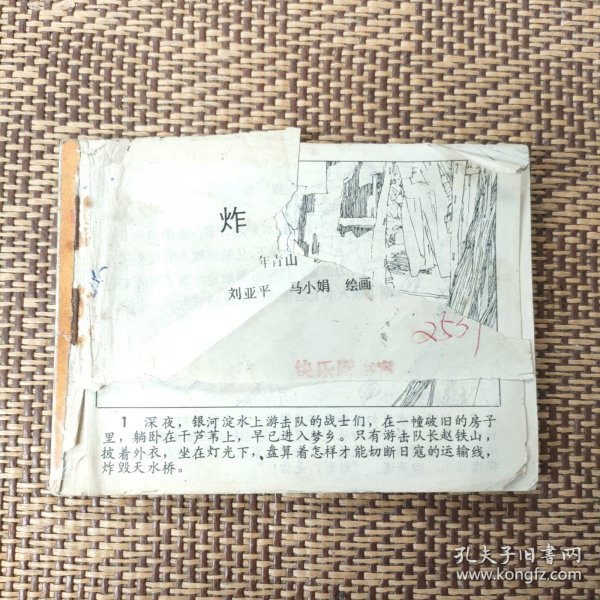 炸
年青山
刘亚平 马小娟 绘画
2551
快乐
1 深夜，银河淀水上游击队的战士们，在一幢破旧的房子
里，躺卧在干芦苇上，早已进入梦乡。只有游击队长赵铁山，
披着外衣，坐在灯光下，盘算着怎样才能切断日寇的运输线，
炸毁天水桥。
孔夫子旧书网
www.kongfz.com